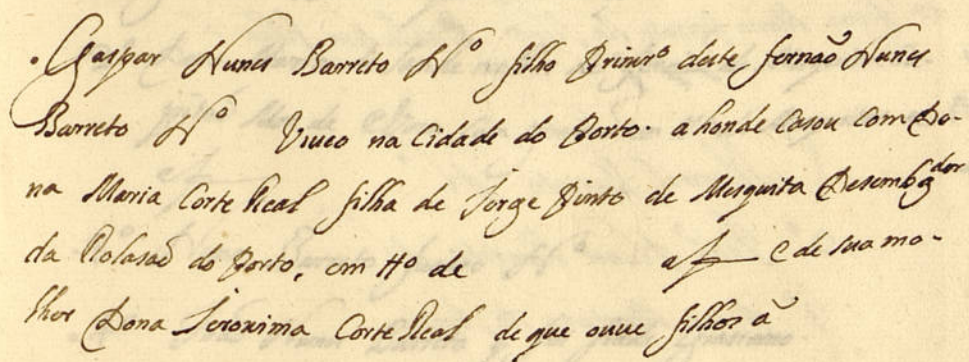 . Gaspar Nunes Barreto Nº filho Primrº deste, fernaõ Nunes
Barreto Nº Viueo na Cidade do Porto. a honde Casou com Do-
na Maria Corte Real filha de Jorge Pinto de Mesquita Desembgdor
da Rolasaõ do Porto, em ttº de af e de sua mo-
lher Dona Jeronima Corte Real de que ouue filhos ã